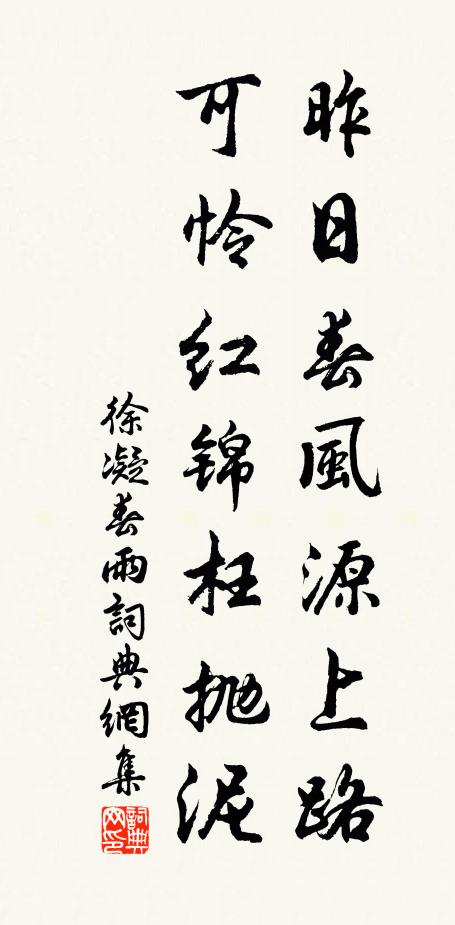 昨日春風源上路
可怜红锦枉抛泥
徐凝春雨詞典網集
詞典网印